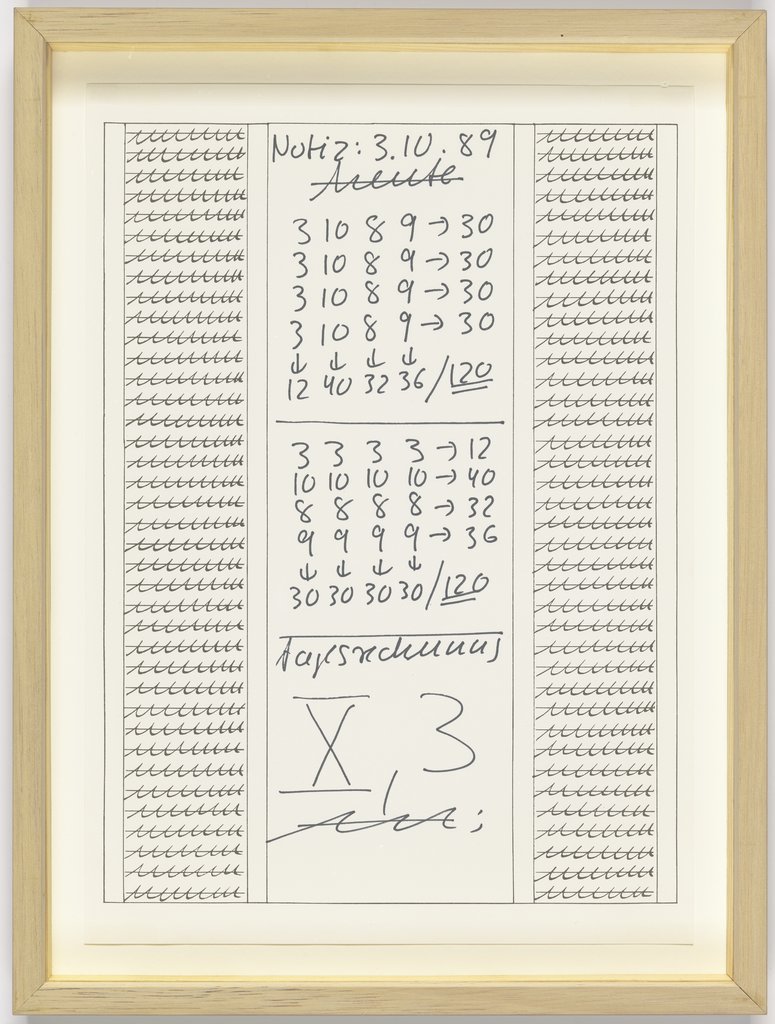 Notiz: 3.10.89
heute
3 10 8 9 → 30
3 10 8 9 → 30
3 10 8 9 → 30
3 10 8 9 → 30
↓ ↓ ↓ ↓
12 40 32 36 / 120
3 3 3 3 → 12
10 10 10 10 → 40
8 8 8 8 → 32
9 9 9 9 → 36
↓ ↓ ↓ ↓
30 30 30 30 / 120
Tagesrechnung
X, 3